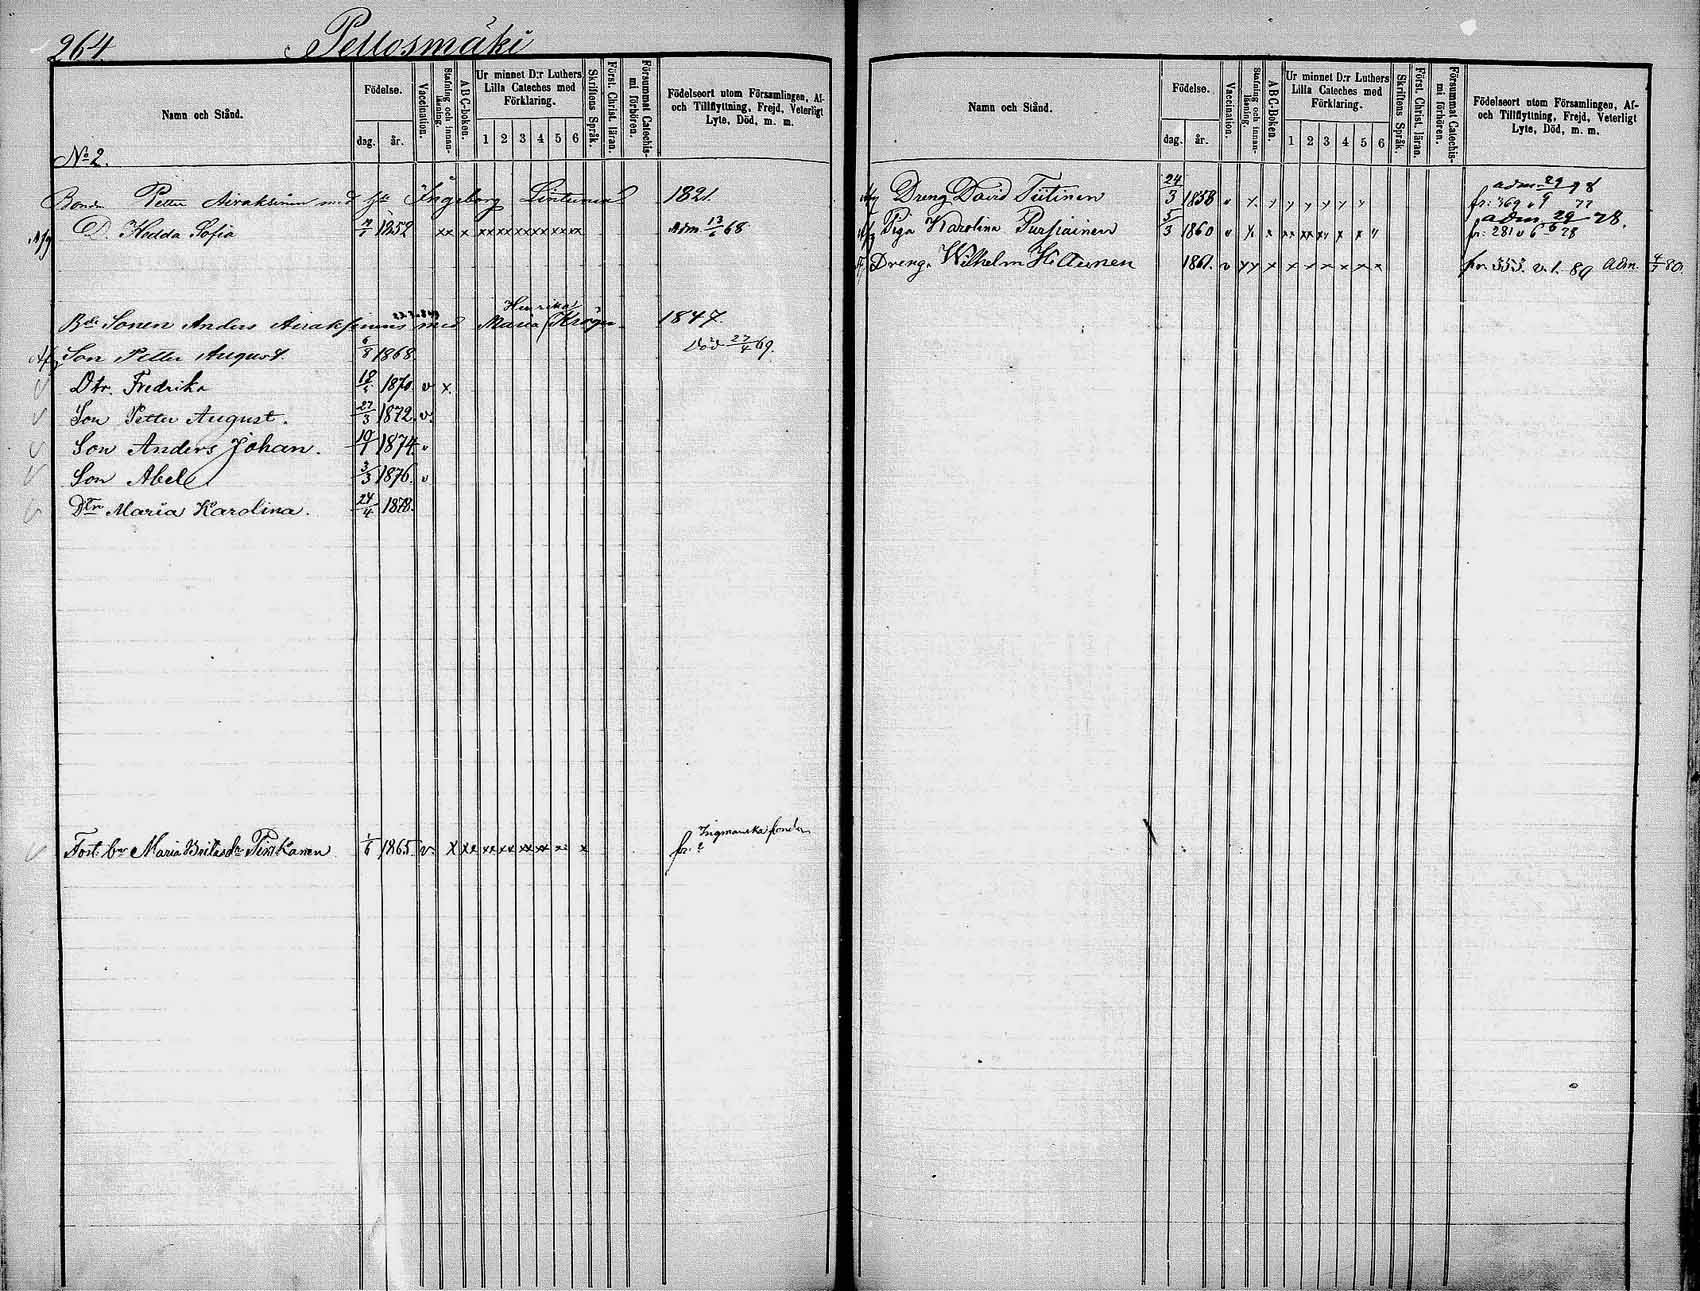 264.
Pellosmäki
Namn och Stånd.
Födelse.
dag.
år.
Vaccination.
Stafning och innanläsning.
A B C-boken.
Ur minnet D:r Luthers
Lilla Cateches med
Förklaring.
1 2 3 4 5 6
Skriftens Språk.
Först. Christ. läran.
Försummat Catechismi förhören.
Födelseort utom Församlingen, Af-
och Tillflyttning, Frejd, Veterligt
Lyte, Död, m. m.
No 2.
Bonde Petter Airaksinen med Ingeborg 1821.
Afg D. Hedda Sofia 1852 Adm 13/6 68
Henrika
Bde Sonen Anders med Maria Kröger 1847.
Afg Son Petter August. 6/8 1868. Död 27/4 69.
Dtr. Fredrika 18/5 1870. v x.
Son Petter August. 27/3 1872. v.
Son Anders Johan. 10/1 1874. v
Son Abel 3/3 1876. v
Dtr Maria Karolina. 24/4 1878.
Ingmanska fonden
Maria 1/6 1865. v. fr.
Namn och Stånd.
Födelse.
dag.
år.
Vaccination.
Stafning och innanläsning.
A B C-boken.
Ur minnet D:r Luthers
Lilla Cateches med
Förklaring.
1 2 3 4 5 6
Skriftens Språk.
Först. Christ. läran.
Försummat Catechismi förhören.
Födelseort utom Församlingen, Af-
och Tillflyttning, Frejd, Veterligt
Lyte, Död, m. m.
Dreng David Tiitinen 24/3 1858 v fr: 369
adm 29 78.
Piga Karolina Purhainen 5/3 1860 v fr: 281 v 6 78
Dreng Wilhelm 1861. v fr. 555. v. 1. 80 Adm. 4/7 80.